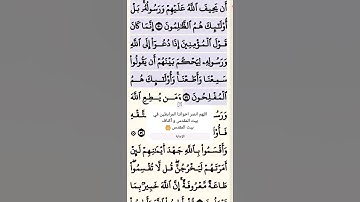 أَن يَحِيفَ ٱللَّهُ عَلَيْهِمْ وَرَسُولُهُۥ بَلْ
أُو۟لَـٰٓئِكَ هُمُ ٱلظَّـٰلِمُونَ ۝ إِنَّمَا كَانَ
قَوْلَ ٱلْمُؤْمِنِينَ إِذَا دُعُوٓا۟ إِلَى ٱللَّهِ
وَرَسُولِهِۦ لِيَحْكُمَ بَيْنَهُمْ أَن يَقُولُوا۟
سَمِعْنَا وَأَطَعْنَا وَأُو۟لَـٰٓئِكَ هُمُ
ٱلْمُفْلِحُونَ ۝ وَمَن يُطِعِ ٱللَّهَ
وَرَسُ
اللهم انصر اخواننا المرابطين في
بيت المقدس و أكناف
بيت المقدس
تَّقْهِ
فَأُو۟
وَأَقْسَمُوا۟ بِٱللَّهِ جَهْدَ أَيْمَـٰنِهِمْ لَئِنْ
أَمَرْتَهُمْ لَيَخْرُجُنَّ قُل لَّا تُقْسِمُوا۟
طَاعَةٌ مَّعْرُوفَةٌ إِنَّ ٱللَّهَ خَبِيرٌۢ بِمَا